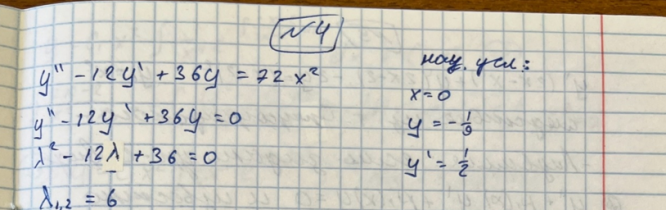 №4
y'' - 12y' + 36y = 72x²
y'' - 12y' + 36y = 0
λ² - 12λ + 36 = 0
λ₁,₂ = 6
нач. усл:
x=0
y = -1/9
y' = 1/2